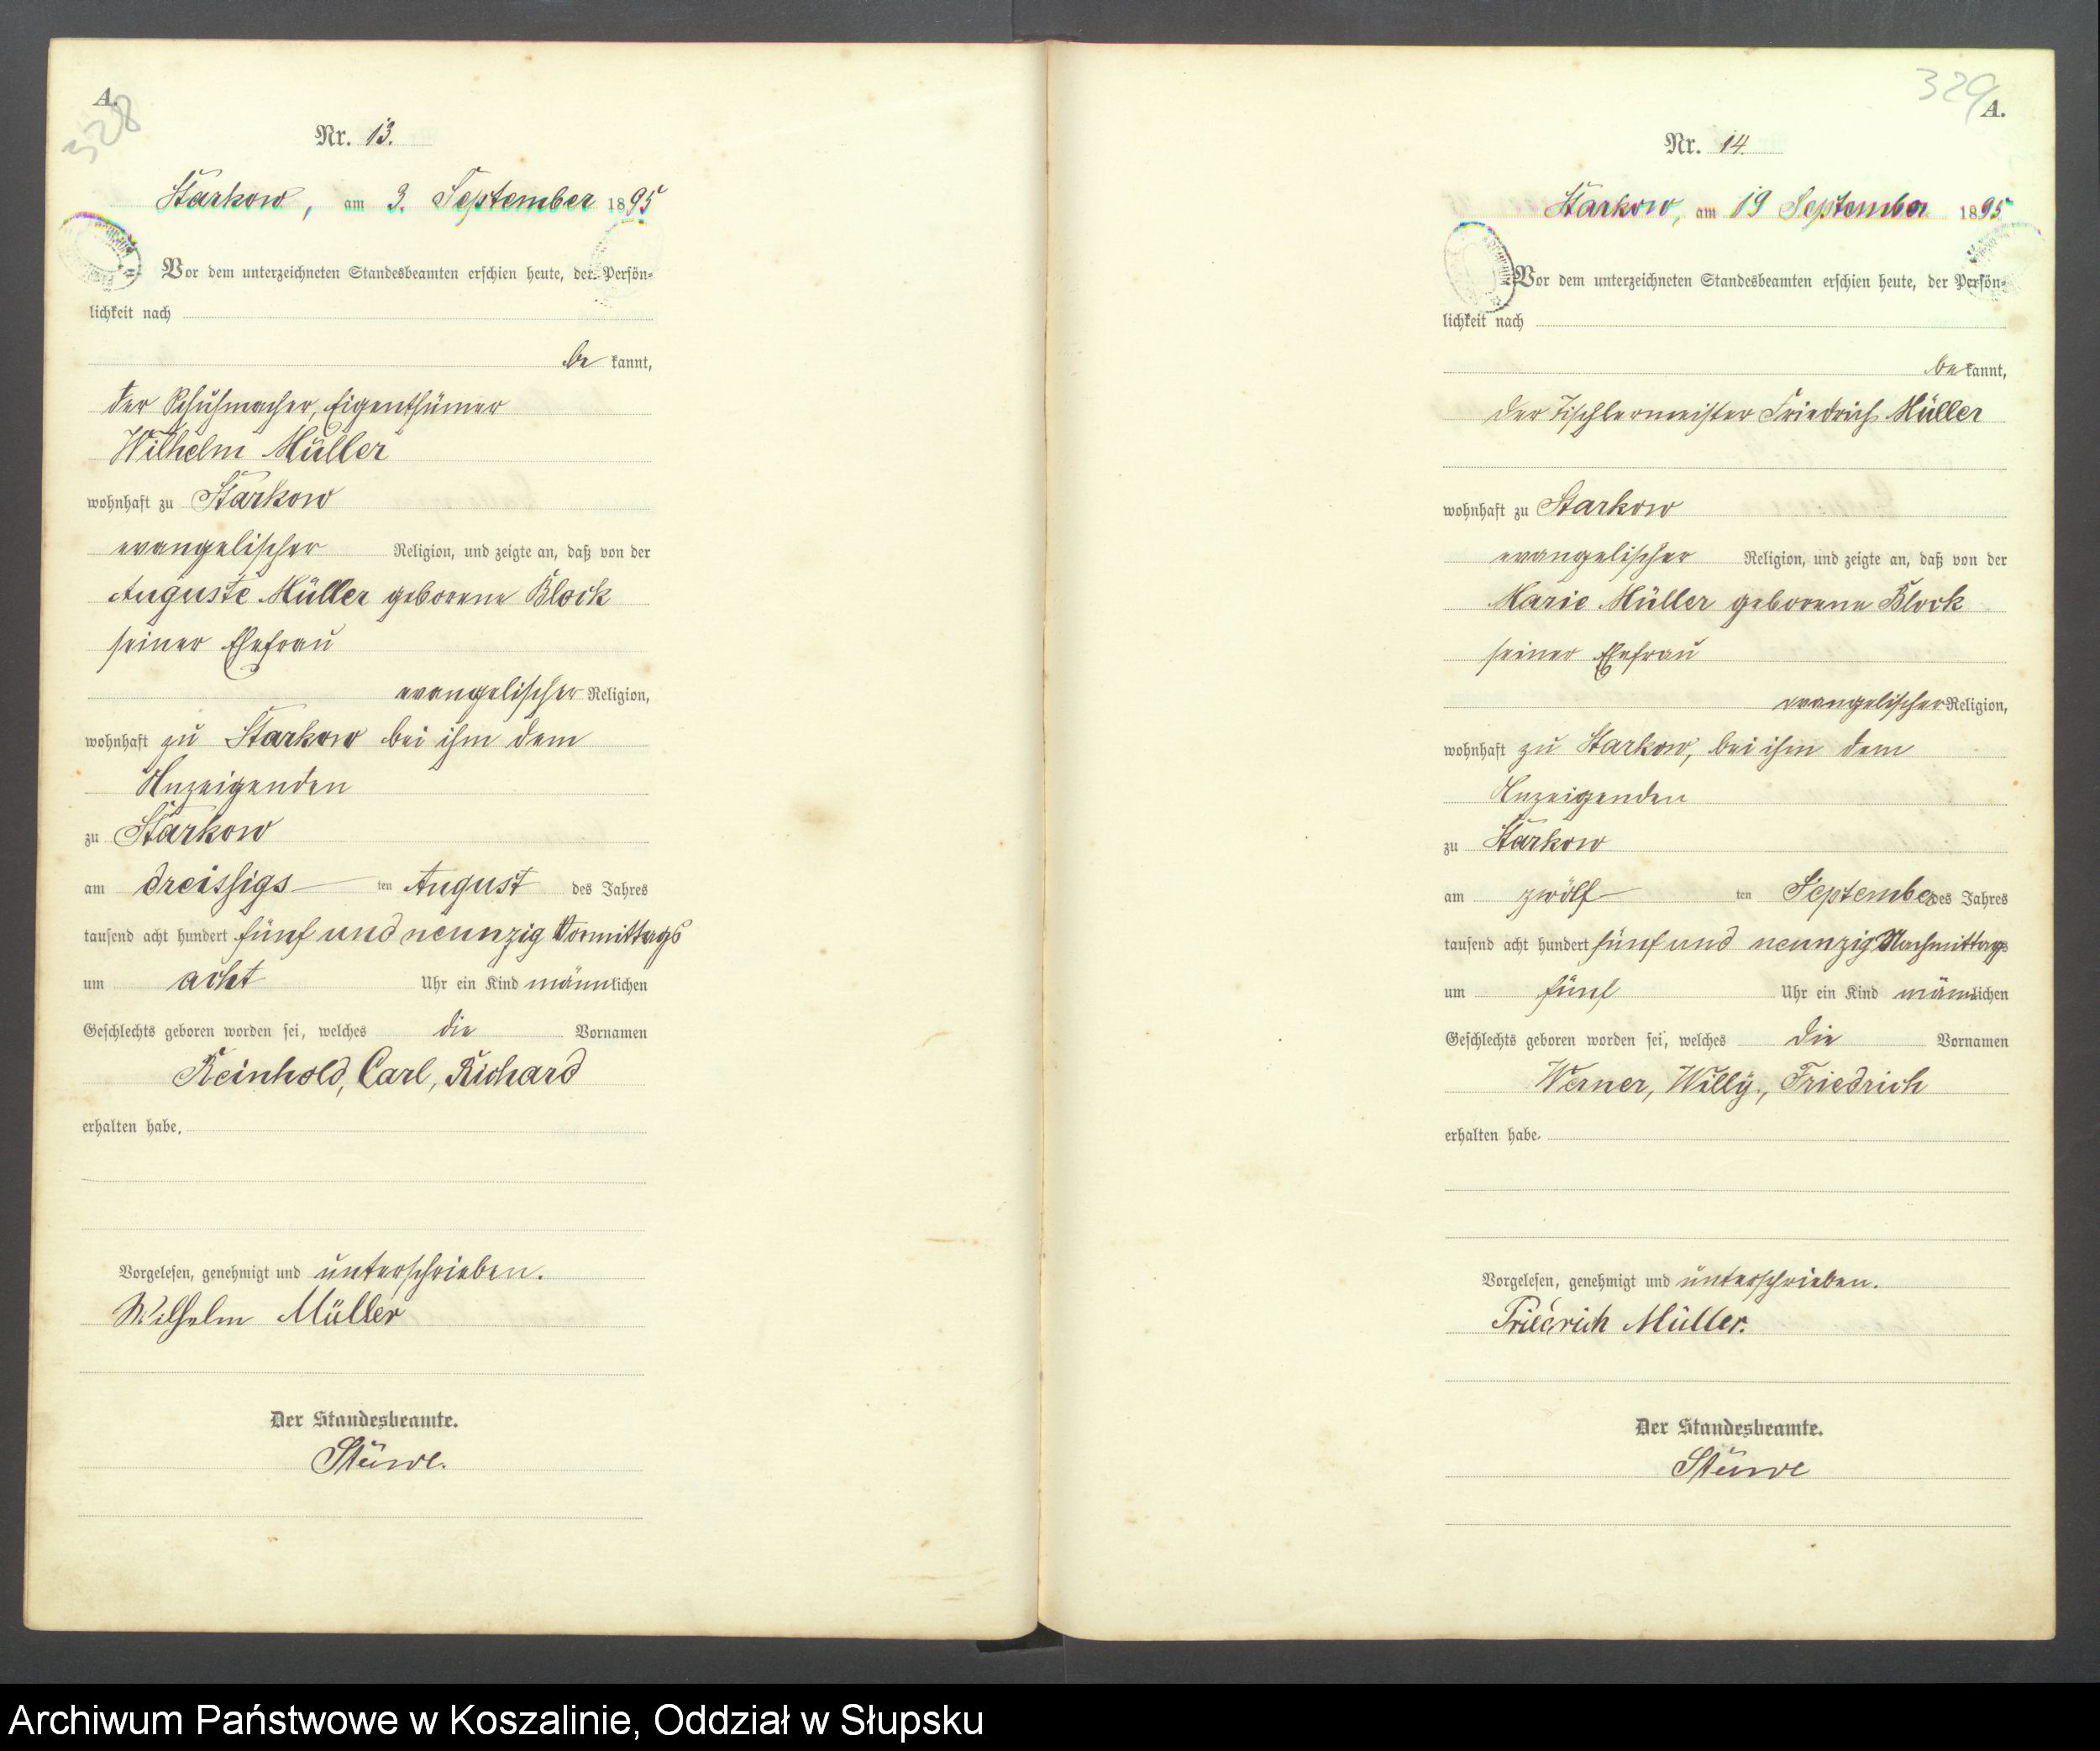 A.
328
Nr. 13.
Starkow, am 3. September 1895
Vor dem unterzeichneten Standesbeamten erschien heute, der Persön-
lichkeit nach
be kannt,
der Schuhmacher, Eigenthümer
Wilhelm Müller
wohnhaft zu Starkow
evangelischer Religion, und zeigte an, daß von der
Auguste Müller geborene Block
seiner Ehefrau
evangelischer Religion,
wohnhaft zu Starkow bei ihm dem
Anzeigenden
zu Starkow
am dreissigs ten August des Jahres
tausend acht hundert fünf und neunzig Vormittags
um acht Uhr ein Kind männlichen
Geschlechts geboren worden sei, welches die Vornamen
Reinhold, Carl, Richard
erhalten habe.
Vorgelesen, genehmigt und unterschrieben.
Wilhelm Müller
Der Standesbeamte.
Stüwe.
329
A.
Nr. 14.
Starkow, am 19 September 1895
Vor dem unterzeichneten Standesbeamten erschien heute, der Persön-
lichkeit nach
be kannt,
der Tischlermeister Friedrich Müller
wohnhaft zu Starkow
evangelischer Religion, und zeigte an, daß von der
Marie Müller geborene Block
seiner Ehefrau
evangelischer Religion,
wohnhaft zu Starkow, bei ihm dem
Anzeigenden
zu Starkow
am zwölf ten September des Jahres
tausend acht hundert fünf und neunzig Nachmittags
um fünf Uhr ein Kind männlichen
Geschlechts geboren worden sei, welches die Vornamen
Werner, Willy, Friedrich
erhalten habe.
Vorgelesen, genehmigt und unterschrieben.
Friedrich Müller.
Der Standesbeamte.
Stüwe
Archiwum Państwowe w Koszalinie, Oddział w Słupsku